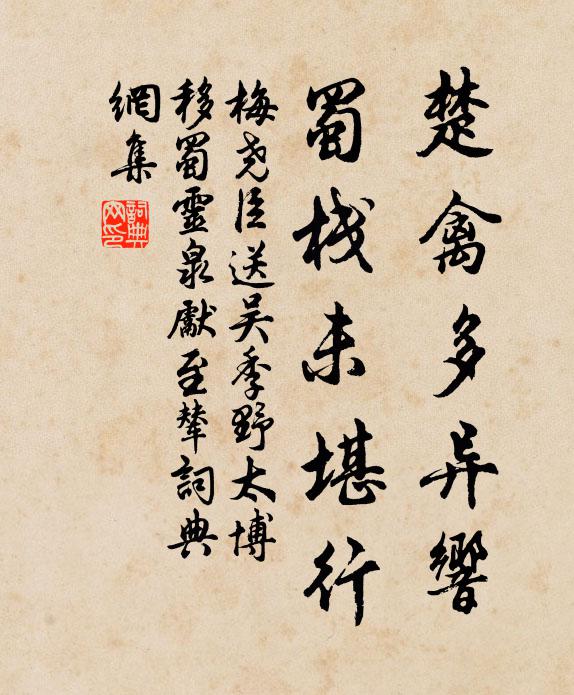 楚禽多异響
蜀栈未堪行
梅尧臣送吴季野太博
移蜀靈泉獻至辇詞典
網集
詞典
网印